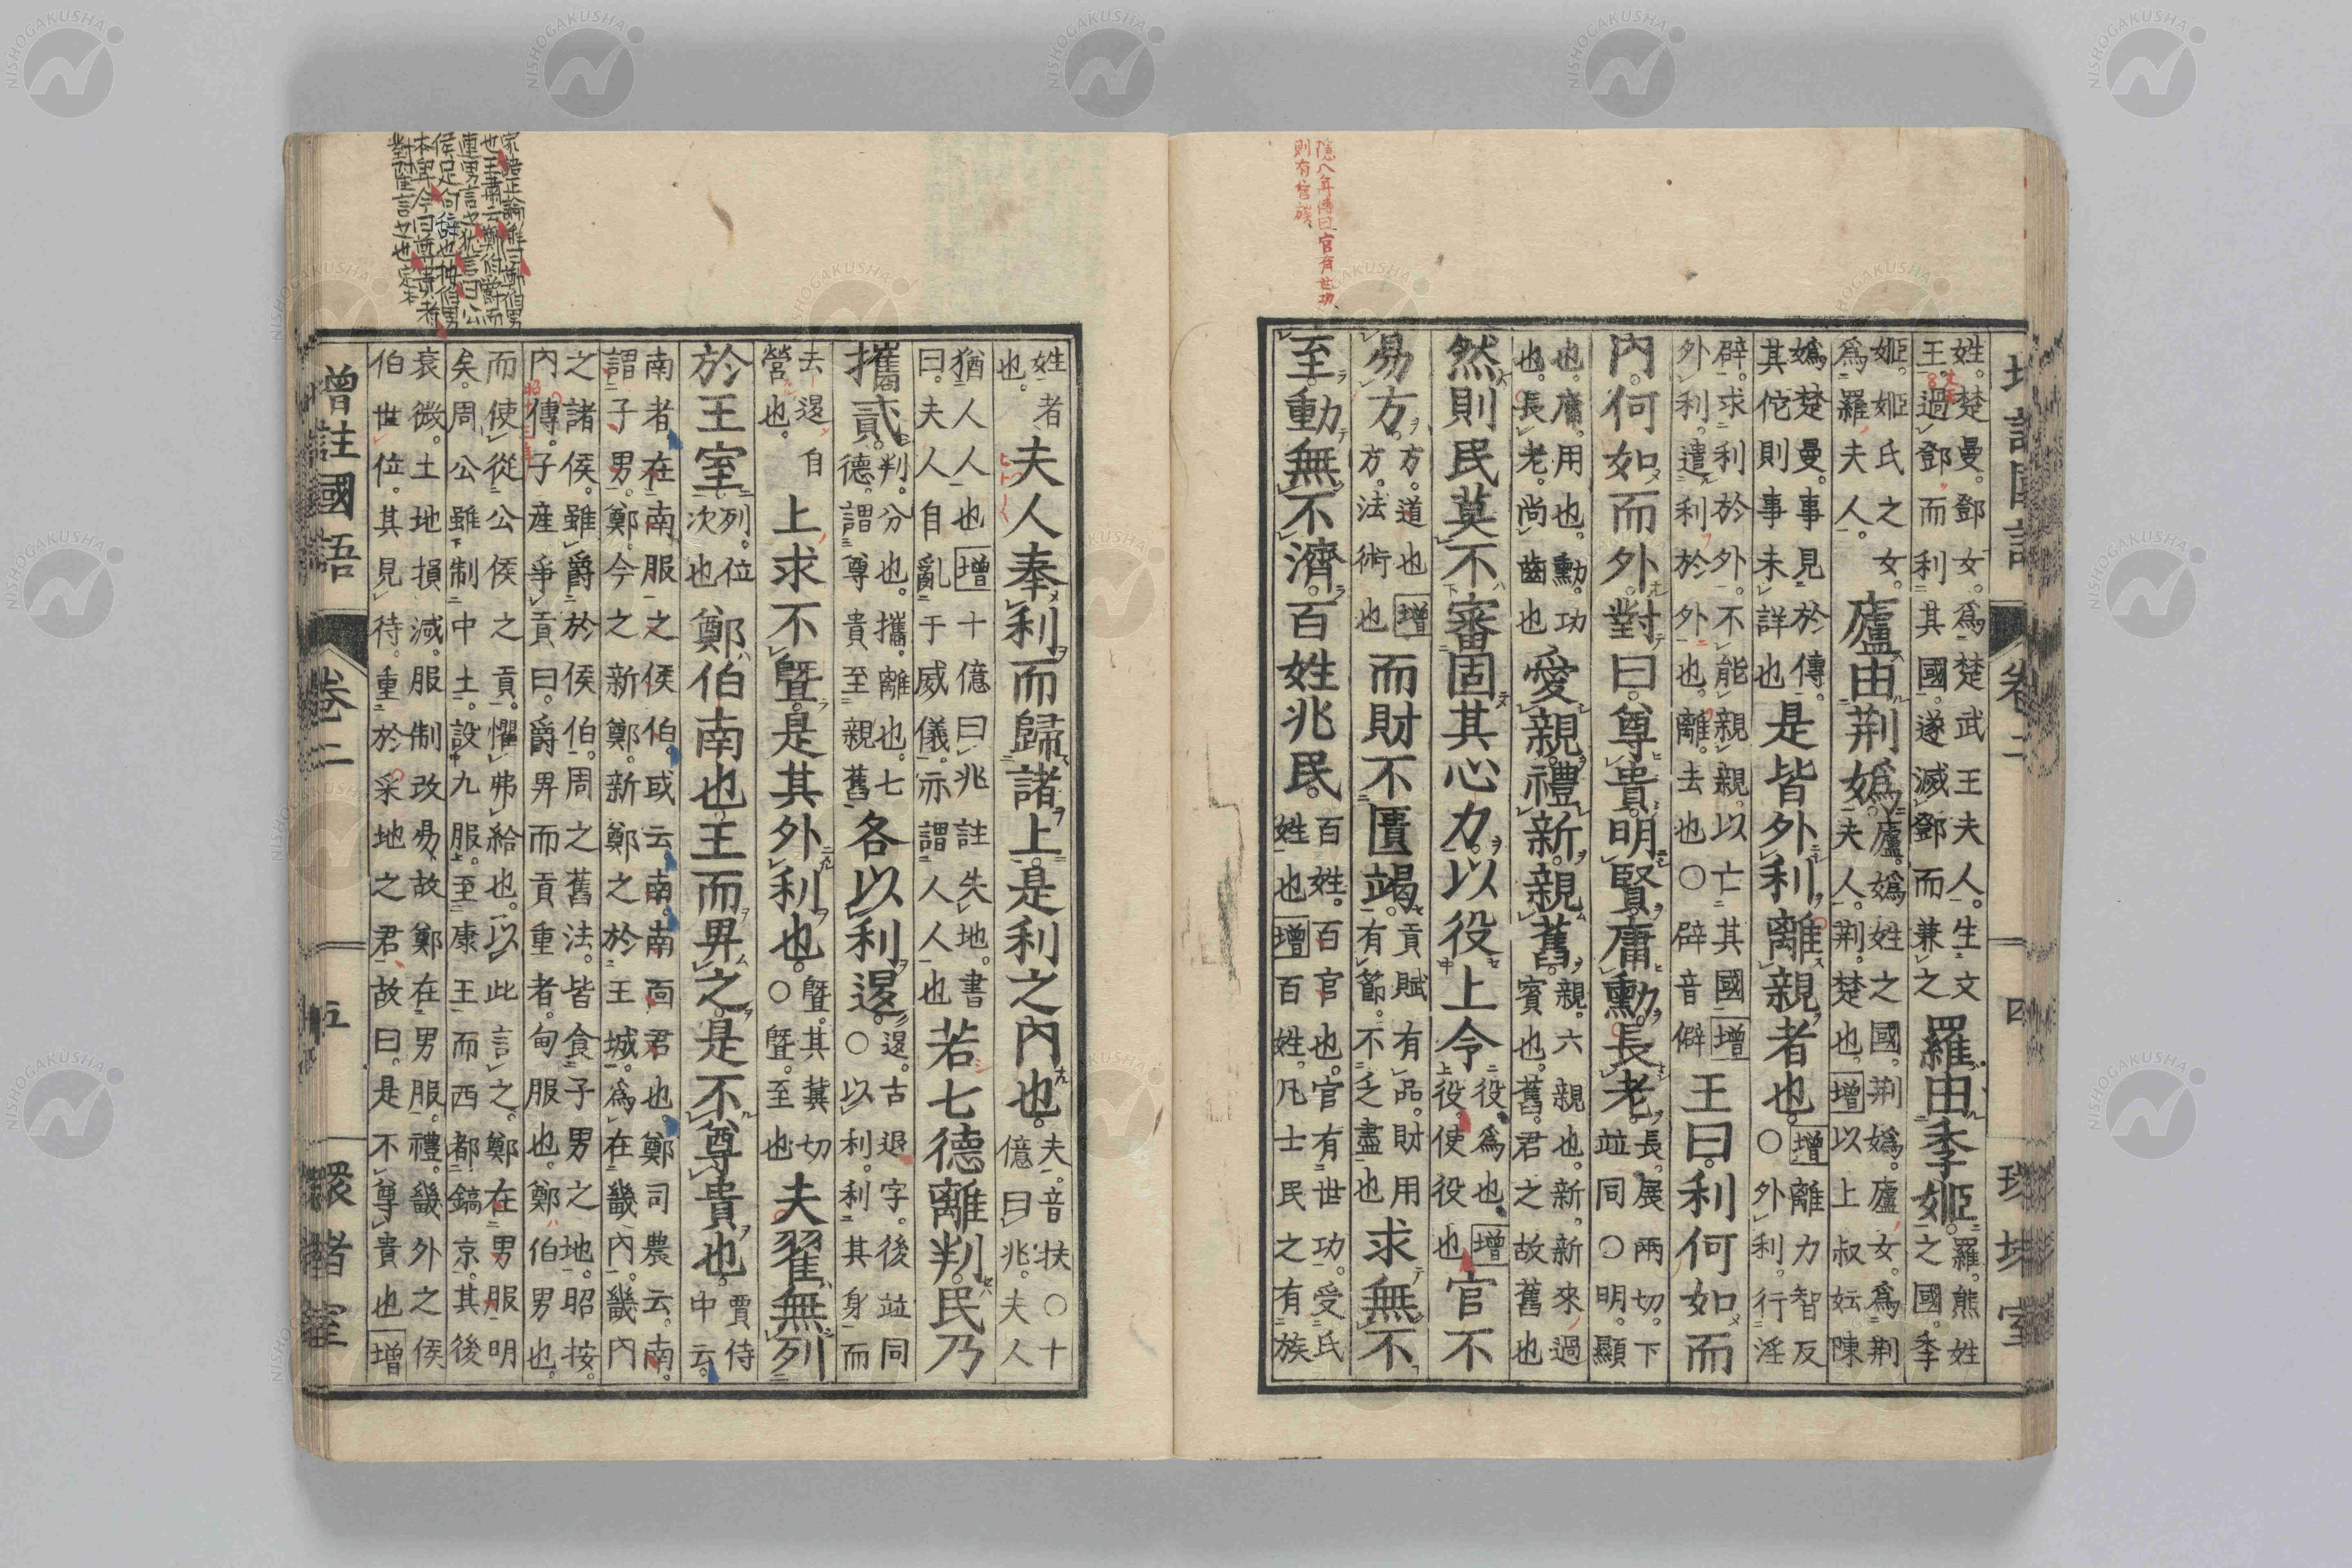 隱八年傳曰官有世功
則有官族
姓楚曼鄧女爲楚武王夫人生文
王過鄧而利其國遂滅鄧而兼之羅由季姬羅熊姓之國季
姬姬氏之女爲羅夫人廬由荆嬀廬嬀姓之國荆嬀廬女爲荆夫人荆楚也增以上叔妘陳
嬀楚曼事見於傳其佗則事未詳也是皆外利離親者也○增離力智反外利行淫
辟求利於外不能親親以亡其國外利遣利於外也離去也○辟音僻增王曰利何如而
內何如而外對曰尊貴明賢庸勳長老長展兩切下竝同○明顯
也庸用也勳功也長老尚齒也愛親禮新親舊親六親也新新來過賓也舊君之故舊也
然則民莫不審固其心力以役上令役爲也增役使役也官不
易方方道也增方法術也而財不匱竭貢賦有品財用有節不乏盡也求無不
至動無不濟百姓兆民百姓百官也官有世功受氏姓也增百姓凡士民之有族
增註國語
卷二
四
姓者也夫人奉利而歸諸上是利之內也夫音扶○十億曰兆夫人
猶人人也增十億曰兆註失地書曰夫人自亂于威儀亦謂人人也若七德離判民乃
攜貳判分也攜離也七德謂尊貴至親舊各以利退退古退字後竝同○以利利其身而
去退自營也上求不曁是其外利也曁其冀切○曁至也夫翟無列
於王室列位次也鄭伯南也王而卑之是不尊貴也賈侍中云
南者在南服之侯伯或云南南面君也鄭司農云南謂子男鄭今之新鄭新鄭之於王城爲在畿內畿內
之諸侯雖爵於侯伯周之舊法皆食子男之地昭按內傳子產爭貢曰爵卑而貢重者甸服也鄭伯男也
而使從公侯之貢懼弗給也以此言之鄭在男服明矣周公雖制中土設九服至康王而西都鎬京其後
衰微土地損減服制改易故鄭在男服禮畿外之侯伯世位其見待重於采地之君故曰是不尊貴也增
增註國語
卷二
五
環堵室